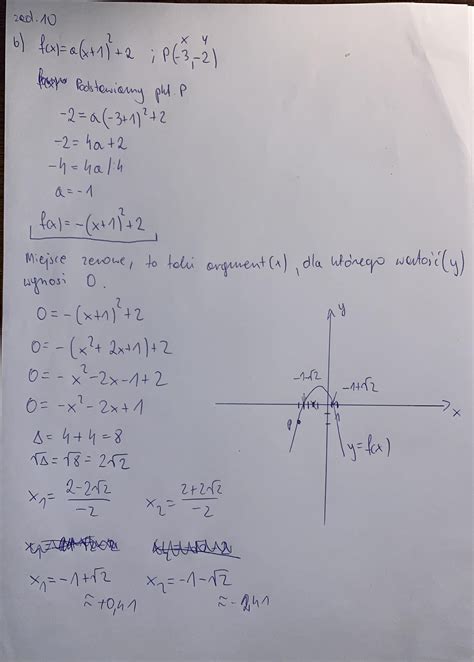 zad. 10
b) f(x)=a(x+1)²+2 ; P(-3,-2)
x y
Podstawiamy pkt. P
-2=a(-3+1)²+2
-2=4a+2
-4=4a/:4
a=-1
f(x)=-(x+1)²+2
Miejsce zerowe, to taki argument(x), dla którego wartość(y)
wynosi 0.
0=-(x+1)²+2
0=-(x²+2x+1)+2
0=-x²-2x-1+2
0=-x²-2x+1
Δ=4+4=8
√Δ=√8=2√2
x₁=2-2√2/-2 x₂=2+2√2/-2
x₁=-1+√2 x₂=-1-√2
≈+0,41 ≈-2,41
y
-1-√2
-1+√2
x
P
y=f(x)